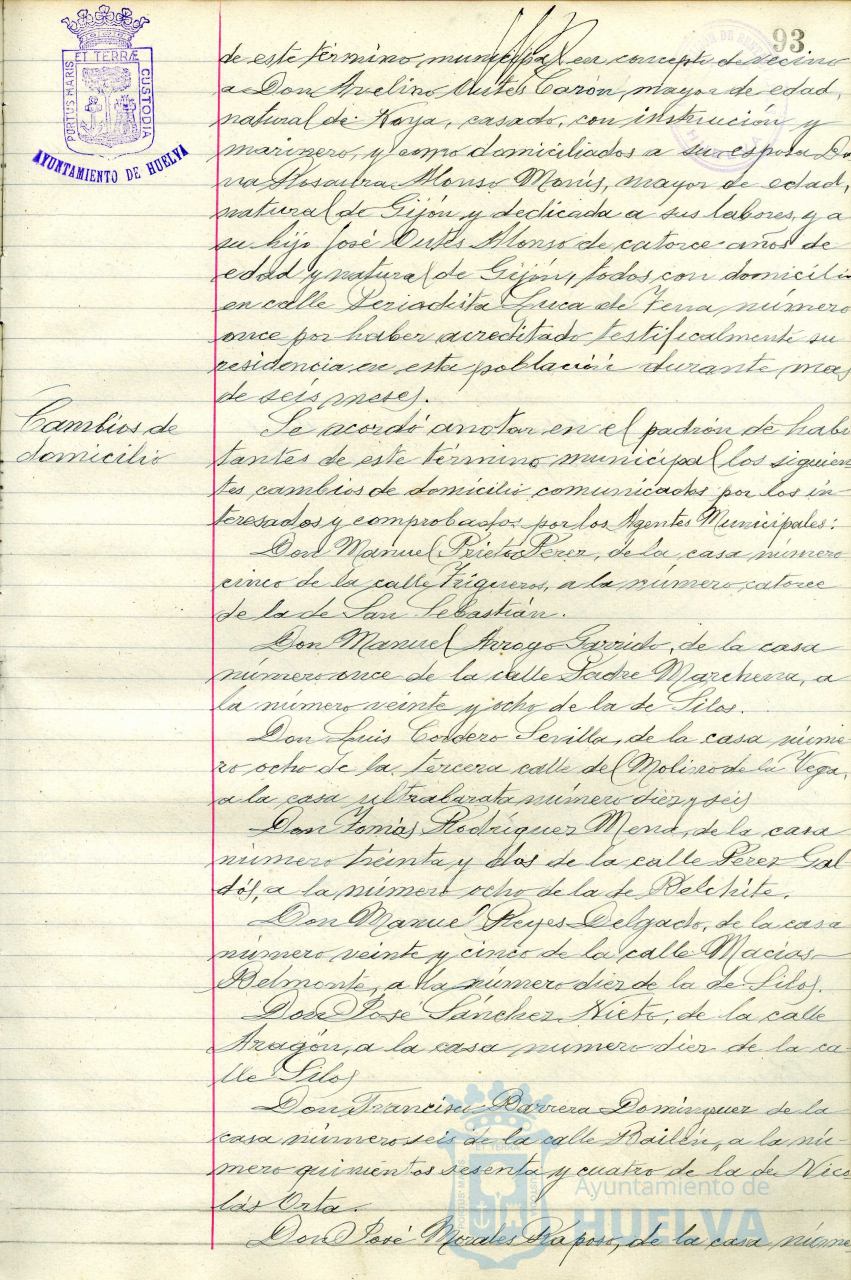 93
PORTUS MARIS ET TERRÆ CUSTODIA
AYUNTAMIENTO DE HUELVA
de este término municipal en concepto de vecino
a Don Avelino Ustes Carón, mayor de edad,
natural de Noya, casado, con instrucción y
marinero, y como domiciliados a su esposa Do
ña Rosaura Alonso Monís, mayor de edad,
natural de Gijón y dedicada a sus labores, y a
su hijo José Ustes Alonso de catorce años de
edad y natural de Gijón, todos con domicilio
en calle Periodista Luca de Tena número
once por haber acreditado testificalmente su
residencia en esta población durante mas
de seis meses.
Cambios de
domicilio
Se acordó anotar en el padrón de habi
tantes de este término municipal los siguien
tes cambios de domicilio comunicados por los in-
teresados y comprobados por los Agentes Municipales:
Don Manuel Prieto Pérez, de la casa número
cinco de la calle Trigueros, a la número catorce
de la de San Sebastián.
Don Manuel Arroyo Garrido, de la casa
número once de la calle Padre Marchena, a
la número veinte y ocho de la de Silos.
Don Luis Cordero Sevilla, de la casa núme-
ro ocho de la tercera calle del Molino de la Vega,
a la casa ultrabarata número diez y seis
Don Tomás Rodríguez Mena, de la casa
número treinta y dos de la calle Pérez Gal
dós, a la número ocho de la de Belchite.
Don Manuel Reyes Delgado, de la casa
número veinte y cinco de la calle Macías
Belmonte, a la número diez de la de Silos.
Don José Sánchez Nieto, de la calle
Aragón, a la casa número diez de la ca-
lle Silos
Don Francisco Barrera Domínguez de la
casa número seis de la calle Bailén, a la nú-
mero quinientos sesenta y cuatro de la de Nico
lás Orta.
Don José Morales Raposo, de la casa núme
Ayuntamiento de
HUELVA